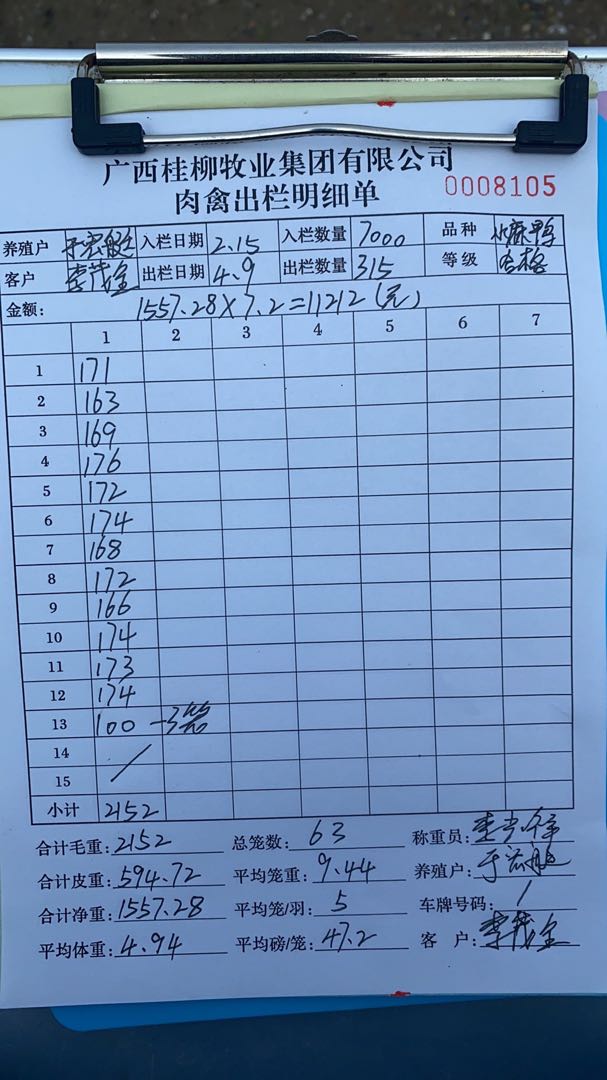 广西桂柳牧业集团有限公司
肉禽出栏明细单 0008105
养殖户 于宏艇 入栏日期 2.15 入栏数量 7000 品种 小麻鸭
客户 李茂全 出栏日期 4.9 出栏数量 315 等级 合格
金额: 1557.28×7.2=11212(元)
1 2 3 4 5 6 7
1 171
2 163
3 169
4 176
5 172
6 174
7 168
8 172
9 166
10 174
11 173
12 174
13 100 -3笼
14 /
15
小计 2152
合计毛重: 2152 总笼数: 63 称重员:
合计皮重: 594.72 平均笼重: 9.44 养殖户: 于宏艇
合计净重: 1557.28 平均笼/羽: 5 车牌号码: /
平均体重: 4.94 平均磅/笼: 47.2 客 户: 李茂全